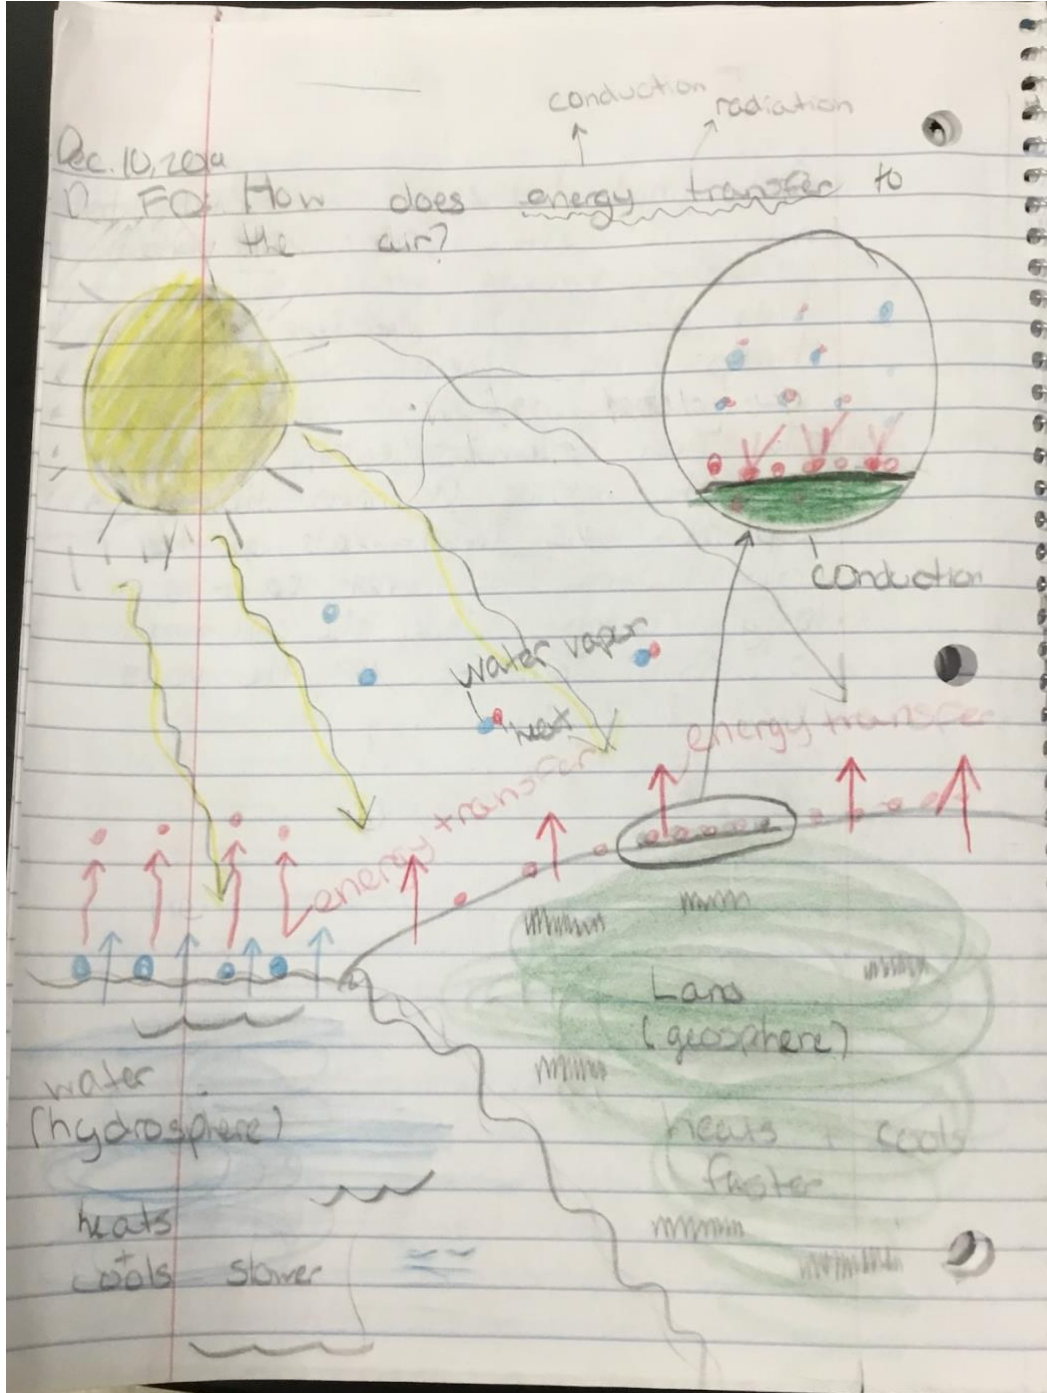 conduction
radiation
Dec. 10,
FQ: How does energy transfer to
the air?
conduction
water vapor
heat
energy transfer
energy transfer
Land
(geosphere)
water
(hydrosphere)
heats cools
faster
heats
+
cools slower